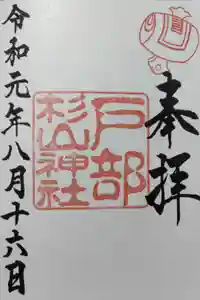 奉拝
戸部
杉山神社
令和元年八月十六日